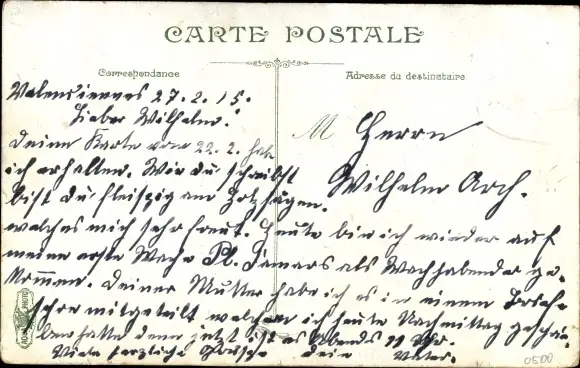 CARTE POSTALE
Correspondance
Adresse du destinataire
Valenciennes 27.2.15.
Lieber Wilhelm!
Deine Karte vom 22.2. habe
ich erhalten. Wie du schreibst
bist du fleißig am Holzsägen.
welches mich sehr freut. Heute bin ich wieder auf
meine erste Wache Pl. Famars als Wachhabender ge-
kommen. Deiner Mutter habe ich es in einem
mitgeteilt welchen ich heute Nachmittag
hatte denn jetzt ist es Abends 11 Uhr.
Viele herzliche Grüße dein Vater.
M Herrn
Wilhelm Arch.
0500